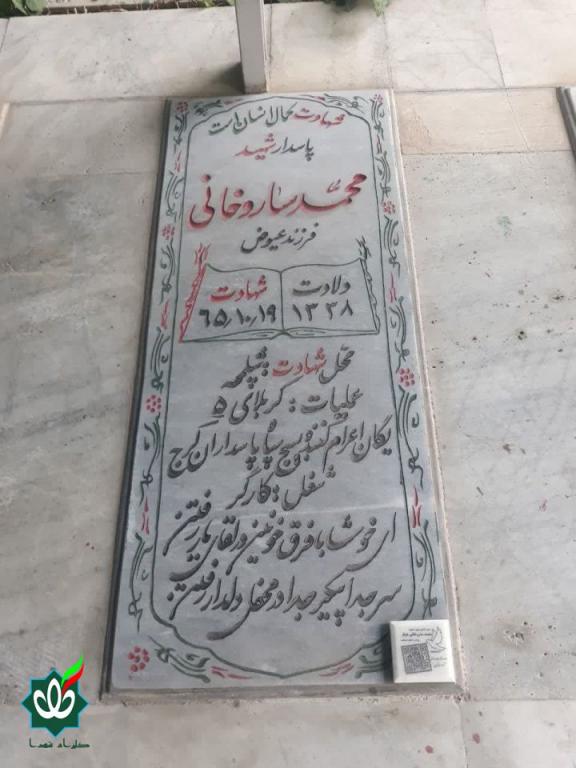 شهادت کمال انسان است
پاسدار شهید
محمد ساروخانی
فرزند عیوض
ولادت
۱۳۳۸
شهادت
۶۵/۱۰/۱۹
محل شهادت: شلمچه
عملیات: کربلای ۵
یگان اعزام کننده بسیج سپاه پاسداران کرج
شغل: کارگر
ای خوشا با فرق خونین در لقای یار رفتن
سر جدا پیکر جدا در محفل دلدار رفتن
گلزار شهدا